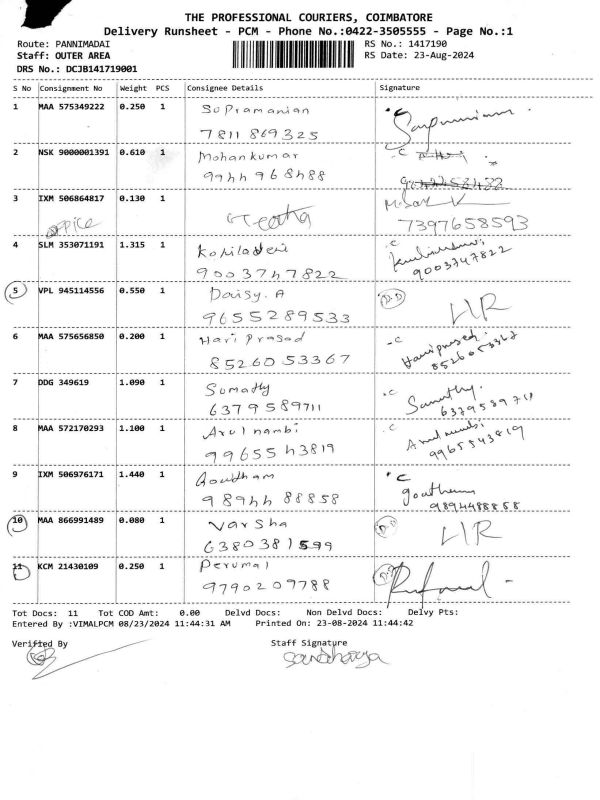 THE PROFESSIONAL COURIERS, COIMBATORE
Delivery Runsheet - PCM - Phone No.:0422-3505555 - Page No.:1
Route: PANNIMADAI RS No.: 1417190
Staff: OUTER AREA RS Date: 23-Aug-2024
DRS No.: DCJB141719001
S No Consignment No Weight PCS Consignee Details Signature
1 MAA 575349222 0.250 1 Sopramanian
7811 869325
2 NSK 9000001391 0.610 1 Mohankumar - C
9944 968488
3 IXM 506864817 0.130 1 Geetha
7397658593
4 SLM 353071191 1.315 1 Kokiladevi .C
9003747822 9003747822
5 VPL 945114556 0.550 1 Daisy. A D.D LIR
9655289533
6 MAA 575656850 0.200 1 Hari Prasad -C Hariprasad.
85260 53367 8526053367
7 DDG 349619 1.090 1 Sumathy .C Sumathy.
6379589711 6379589711
8 MAA 572170293 1.100 1 Arulnambi .C Arulnambi
99655 43819 9965543819
9 IXM 506976171 1.440 1 Goudham C goutham
98944 88858 9894488858
10 MAA 866991489 0.080 1 Varsha D.D LIR
6380381599
11 KCM 21430109 0.250 1 Perumal D.D
9790209788
Tot Docs: 11 Tot COD Amt: 0.00 Delvd Docs: Non Delvd Docs: Delvy Pts:
Entered By :VIMALPCM 08/23/2024 11:44:31 AM Printed On: 23-08-2024 11:44:42
Verified By Staff Signature